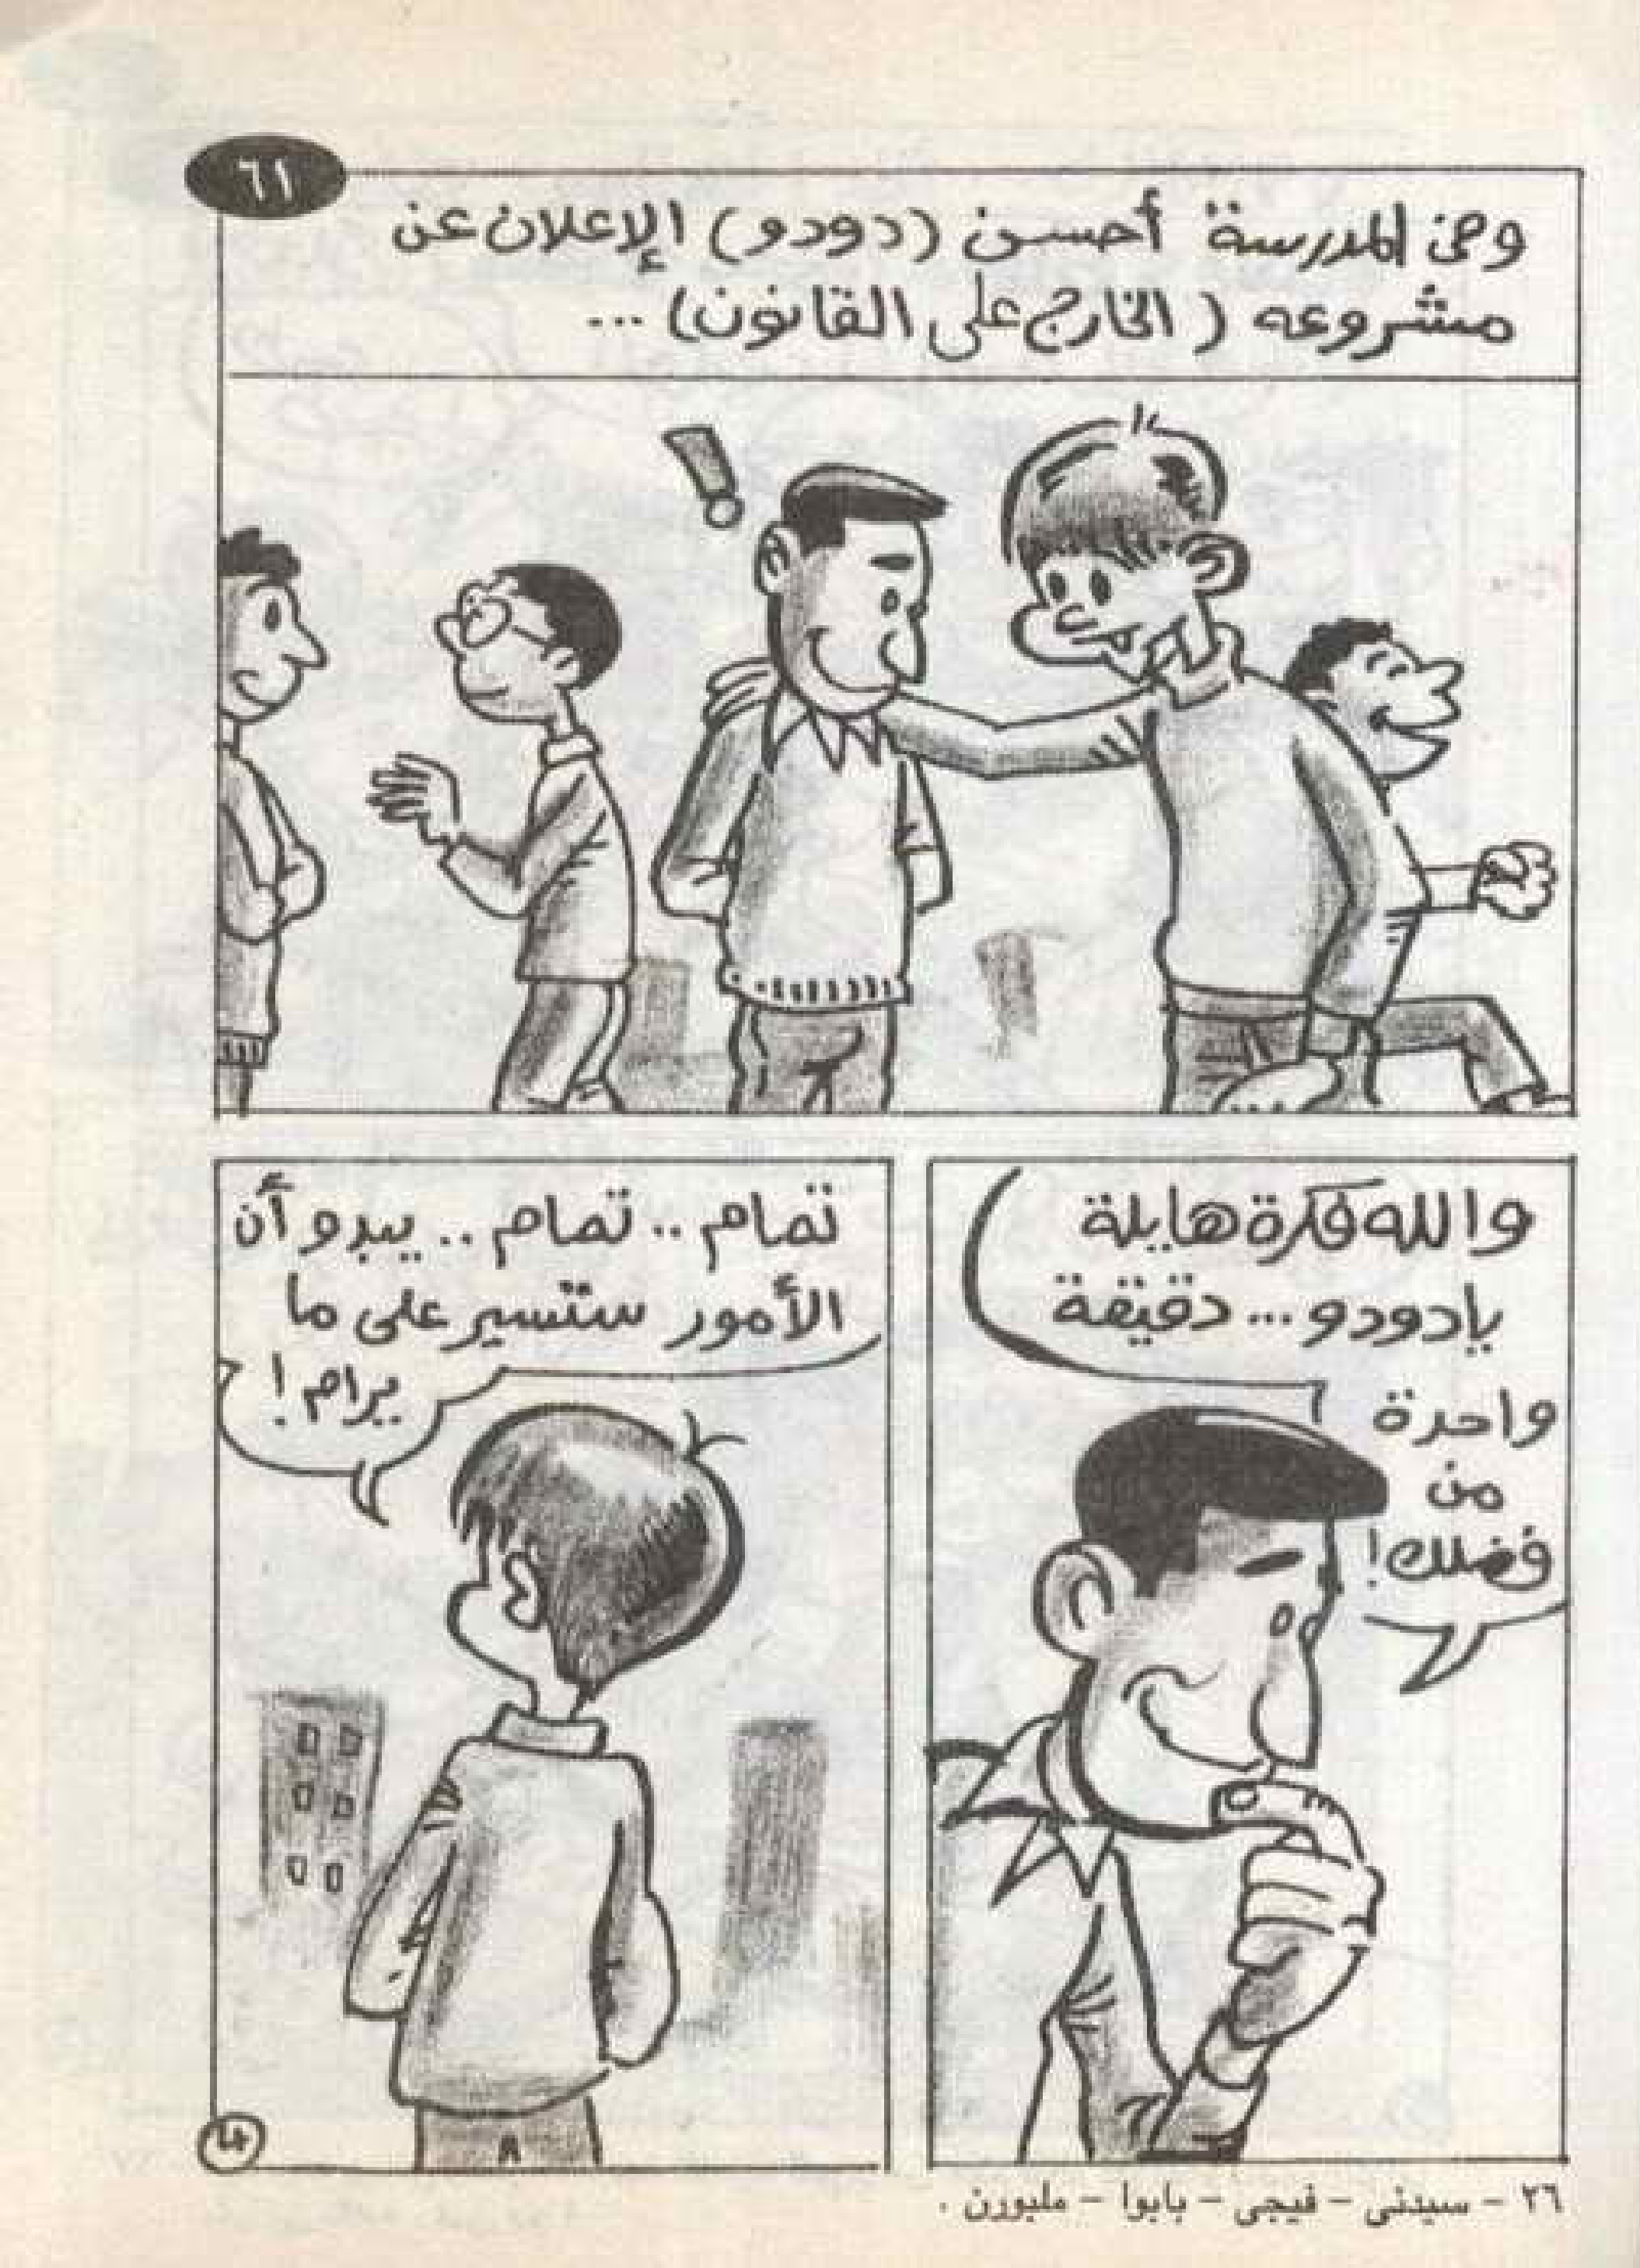 ٦١
وفى المدرسة أحسن (دودو) الإعلان عن
مشروعه (الخارج على القانون) ...
!
والله فكرة هايلة
يادودو... دقيقة
واحدة
من
فضلك!
تمام.. تمام.. يبدو أن
الأمور ستسير على ما
يرام!
٢٦ - سيدنى - فيجى - بابوا - ملبورن .